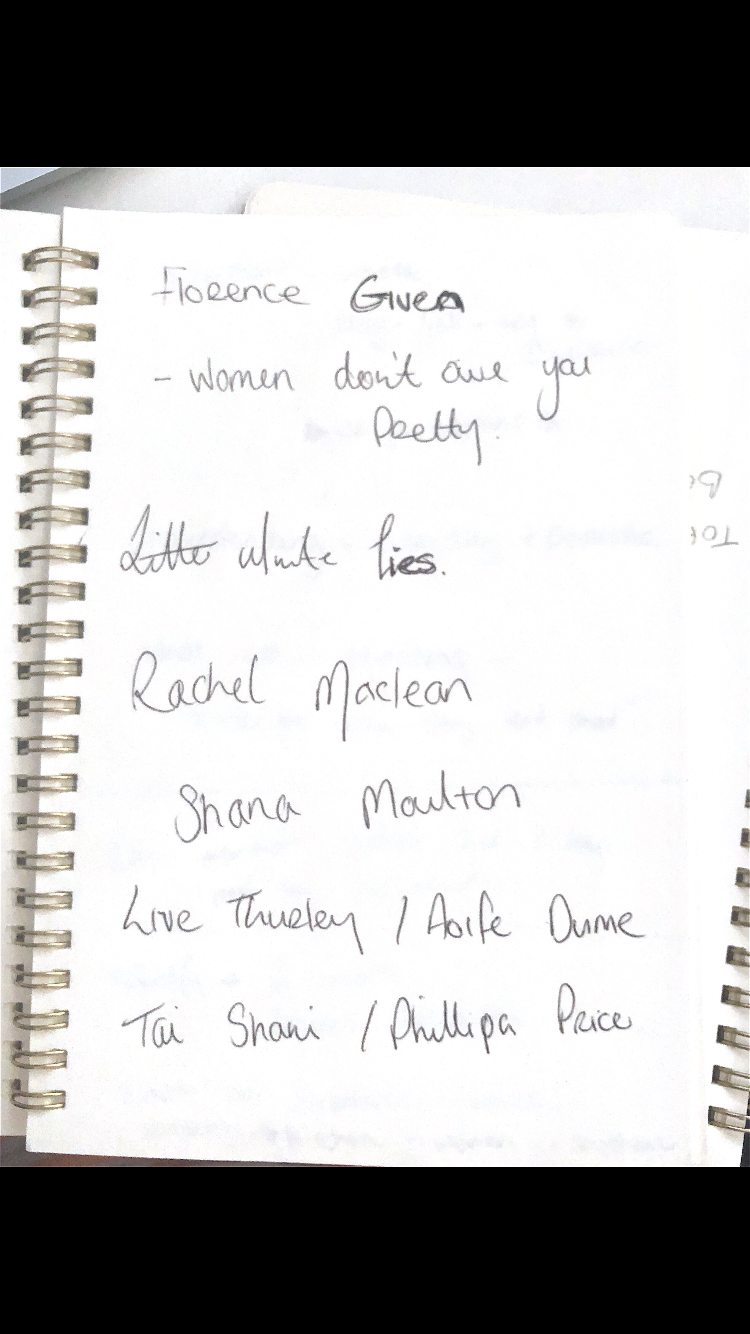 Florence Given
- Women don't owe you
Pretty.
Little white lies.
Rachel Maclean
Shana Moulton
Live Thurley / Aoife Dunne
Tai Shani / Phillipa Price